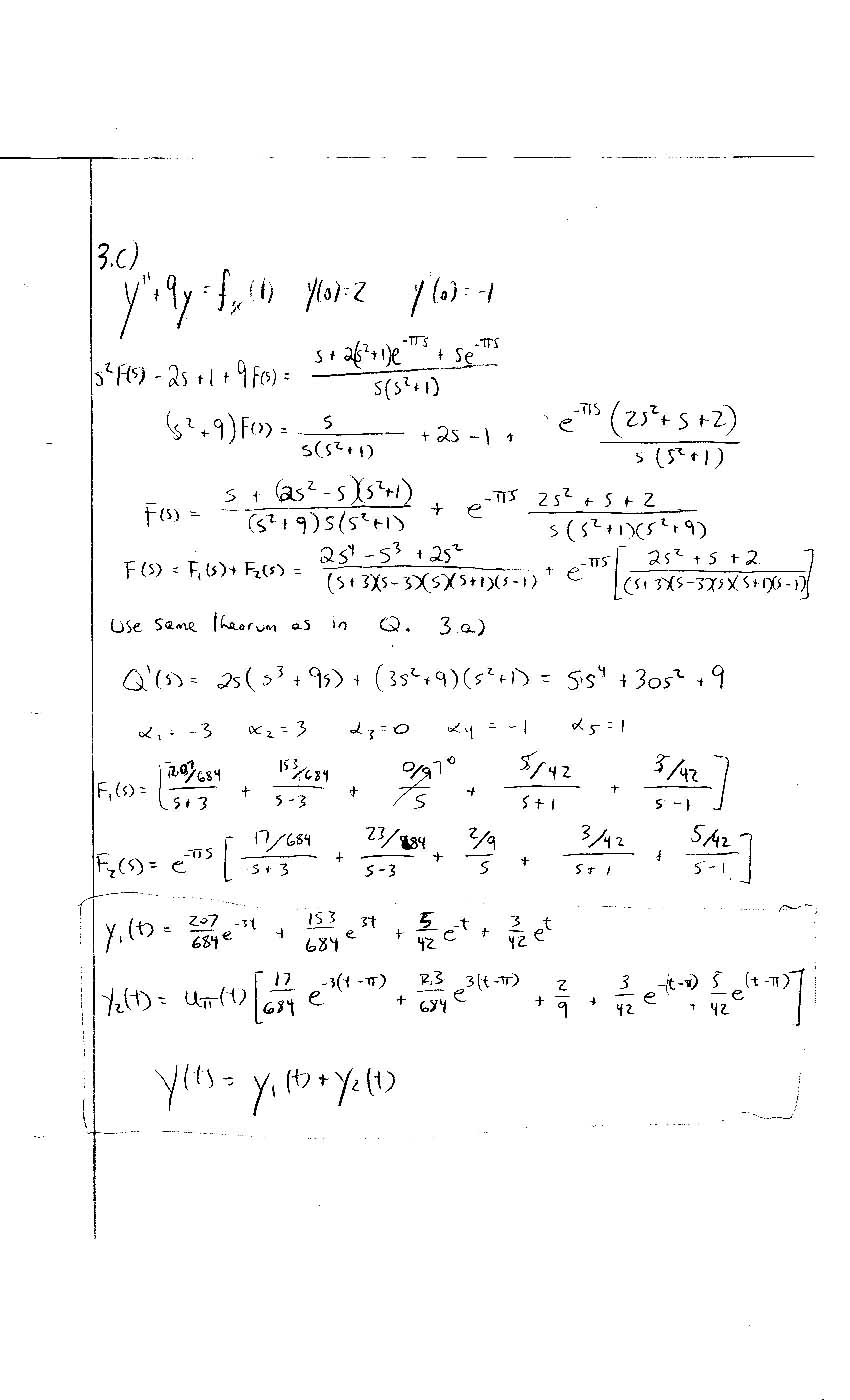 3.c)
y'' + 9y = f_x(t)   y(0)=2   y'(0)=-1
s²F(s) - 2s + 1 + 9F(s) = (s + 2(s²+1)e^{-πs} + se^{-πs}) / (s(s²+1))
(s²+9)F(s) = s / (s(s²+1)) + 2s - 1 + e^{-πs}(2s² + s + 2) / (s(s²+1))
F(s) = (s + (2s² - s)(s²+1)) / ((s²+9)s(s²+1)) + e^{-πs} (2s² + s + 2) / (s(s²+1)(s²+9))
F(s) = F₁(s) + F₂(s) = (2s⁴ - s³ + 2s²) / ((s+3)(s-3)(s)(s+1)(s-1)) + e^{-πs} [(2s² + s + 2) / ((s+3)(s-3)(s)(s+1)(s-1))]
Use same theorum as in Q. 3.a)
Q'(s) = 2s(s³ + 9s) + (3s²+9)(s²+1) = 5s⁴ + 30s² + 9
α₁ = -3   α₂ = 3   α₃ = 0   α₄ = -1   α₅ = 1
F₁(s) = [(207/684)/(s+3) + (153/684)/(s-3) + (0/9)/s → 0 + (5/42)/(s+1) + (3/42)/(s-1)]
F₂(s) = e^{-πs} [(17/684)/(s+3) + (23/684)/(s-3) + (2/9)/s + (3/42)/(s+1) + (5/42)/(s-1)]
y₁(t) = 207/684 e^{-3t} + 153/684 e^{3t} + 5/42 e^{-t} + 3/42 e^{t}
y₂(t) = u_π(t) [17/684 e^{-3(t-π)} + 23/684 e^{3(t-π)} + 2/9 + 3/42 e^{-(t-π)} + 5/42 e^{(t-π)}]
y(t) = y₁(t) + y₂(t)